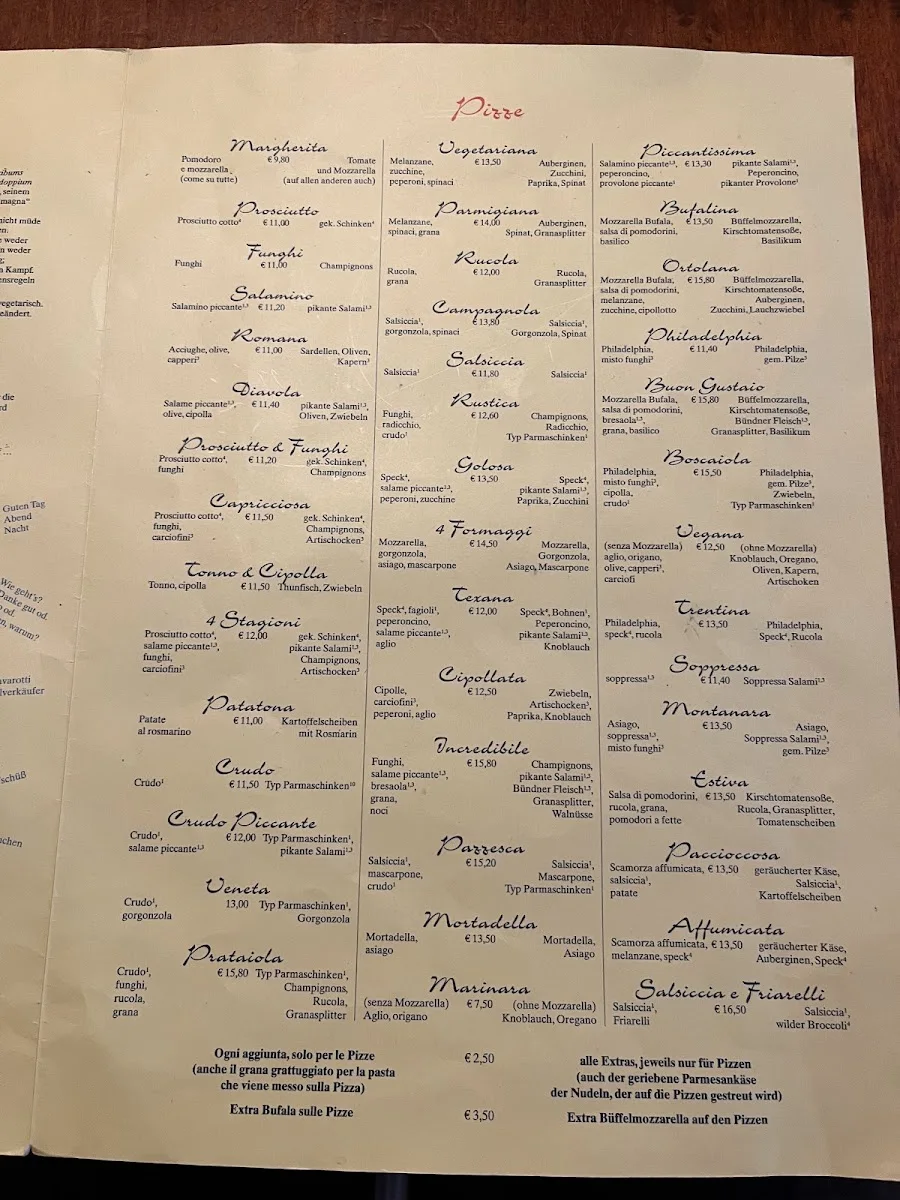 ibums
doppium
, seinem
magna"
nicht müde
en.
e weder
n weder
g;
n Kampf.
ensregeln
vegetarisch.
eändert.
die
rd
...
Guten Tag
Abend
Nacht
Wie geht's?
Danke gut od.
o od.
n, warum?
avarotti
lverkäufer
schüß
chen
Pizze
Margherita
Pomodoro € 9,80 Tomate
e mozzarella und Mozzarella
(come su tutte) (auf allen anderen auch)
Prosciutto
Prosciutto cotto⁴ € 11,00 gek. Schinken⁴
Funghi
Funghi € 11,00 Champignons
Salamino
Salamino piccante¹·³ € 11,20 pikante Salami¹·³
Romana
Acciughe, olive, € 11,00 Sardellen, Oliven,
capperi³ Kapern³
Diavola
Salame piccante¹·³, € 11,40 pikante Salami¹·³,
olive, cipolla Oliven, Zwiebeln
Prosciutto & Funghi
Prosciutto cotto⁴, € 11,20 gek. Schinken⁴,
funghi Champignons
Capricciosa
Prosciutto cotto⁴, € 11,50 gek. Schinken⁴,
funghi, Champignons,
carciofini³ Artischocken³
Tonno & Cipolla
Tonno, cipolla € 11,50 Thunfisch, Zwiebeln
4 Stagioni
Prosciutto cotto⁴, € 12,00 gek. Schinken⁴,
salame piccante¹·³, pikante Salami¹·³,
funghi, Champignons,
carciofini³ Artischocken³
Patatona
Patate € 11,00 Kartoffelscheiben
al rosmarino mit Rosmarin
Crudo
Crudo¹ € 11,50 Typ Parmaschinken¹⁸
Crudo Piccante
Crudo¹, € 12,00 Typ Parmaschinken¹,
salame piccante¹·³ pikante Salami¹·³
Veneta
Crudo¹, 13,00 Typ Parmaschinken¹,
gorgonzola Gorgonzola
Prataiola
Crudo¹, € 15,80 Typ Parmaschinken¹,
funghi, Champignons,
rucola, Rucola,
grana Granasplitter
Vegetariana
Melanzane, € 13,50 Auberginen,
zucchine, Zucchini,
peperoni, spinaci Paprika, Spinat
Parmigiana
Melanzane, € 14,00 Auberginen,
spinaci, grana Spinat, Granasplitter
Rucola
Rucola, € 12,00 Rucola,
grana Granasplitter
Campagnola
Salsiccia¹, € 13,80 Salsiccia¹,
gorgonzola, spinaci Gorgonzola, Spinat
Salsiccia
Salsiccia¹ € 11,80 Salsiccia¹
Rustica
Funghi, € 12,60 Champignons,
radicchio, Radicchio,
crudo¹ Typ Parmaschinken¹
Golosa
Speck⁴, € 13,50 Speck⁴,
salame piccante¹·³, pikante Salami¹·³,
peperoni, zucchine Paprika, Zucchini
4 Formaggi
Mozzarella, € 14,50 Mozzarella,
gorgonzola, Gorgonzola,
asiago, mascarpone Asiago, Mascarpone
Texana
Speck⁴, fagioli¹, € 12,00 Speck⁴, Bohnen¹,
peperoncino, Peperoncino,
salame piccante¹·³, pikante Salami¹·³,
aglio Knoblauch
Cipollata
Cipolle, € 12,50 Zwiebeln,
carciofini³, Artischocken³,
peperoni, aglio Paprika, Knoblauch
Incredibile
Funghi, € 15,80 Champignons,
salame piccante¹·³, pikante Salami¹·³,
bresaola¹·³, Bündner Fleisch¹·³,
grana, Granasplitter,
noci Walnüsse
Pazzesca
Salsiccia¹, € 15,20 Salsiccia¹,
mascarpone, Mascarpone,
crudo¹ Typ Parmaschinken¹
Mortadella
Mortadella, € 13,50 Mortadella,
asiago Asiago
Marinara
(senza Mozzarella) € 7,50 (ohne Mozzarella)
Aglio, origano Knoblauch, Oregano
Piccantissima
Salamino piccante¹·³, € 13,30 pikante Salami¹·³,
peperoncino, Peperoncino,
provolone piccante¹ pikanter Provolone¹
Bufalina
Mozzarella Bufala, € 13,50 Büffelmozzarella,
salsa di pomodorini, Kirschtomatensoße,
basilico Basilikum
Ortolana
Mozzarella Bufala, € 15,80 Büffelmozzarella,
salsa di pomodorini, Kirschtomatensoße,
melanzane, Auberginen,
zucchine, cipollotto Zucchini, Lauchzwiebel
Philadelphia
Philadelphia, € 11,40 Philadelphia,
misto funghi³ gem. Pilze³
Buon Gustaio
Mozzarella Bufala, € 15,80 Büffelmozzarella,
salsa di pomodorini, Kirschtomatensoße,
bresaola¹·³, Bündner Fleisch¹·³,
grana, basilico Granasplitter, Basilikum
Boscaiola
Philadelphia, € 15,50 Philadelphia,
misto funghi³, gem. Pilze³,
cipolla, Zwiebeln,
crudo¹ Typ Parmaschinken¹
Vegana
(senza Mozzarella) € 12,50 (ohne Mozzarella)
aglio, origano, Knoblauch, Oregano,
olive, capperi³, Oliven, Kapern,
carciofi Artischoken
Trentina
Philadelphia, € 13,50 Philadelphia,
speck⁴, rucola Speck⁴, Rucola
Soppressa
soppressa¹·³ € 11,40 Soppressa Salami¹·³
Montanara
Asiago, € 13,50 Asiago,
soppressa¹·³, Soppressa Salami¹·³,
misto funghi³ gem. Pilze³
Estiva
Salsa di pomodorini, € 13,50 Kirschtomatensoße,
rucola, grana, Rucola, Granasplitter,
pomodori a fette Tomatenscheiben
Paccioccosa
Scamorza affumicata, € 13,50 geräucherter Käse,
salsiccia¹, Salsiccia¹,
patate Kartoffelscheiben
Affumicata
Scamorza affumicata, € 13,50 geräucherter Käse,
melanzane, speck⁴ Auberginen, Speck⁴
Salsiccia e Friarelli
Salsiccia¹, € 16,50 Salsiccia¹,
Friarelli wilder Broccoli⁴
Ogni aggiunta, solo per le Pizze € 2,50 alle Extras, jeweils nur für Pizzen
(anche il grana grattuggiato per la pasta (auch der geriebene Parmesankäse
che viene messo sulla Pizza) der Nudeln, der auf die Pizzen gestreut wird)
Extra Bufala sulle Pizze € 3,50 Extra Büffelmozzarella auf den Pizzen